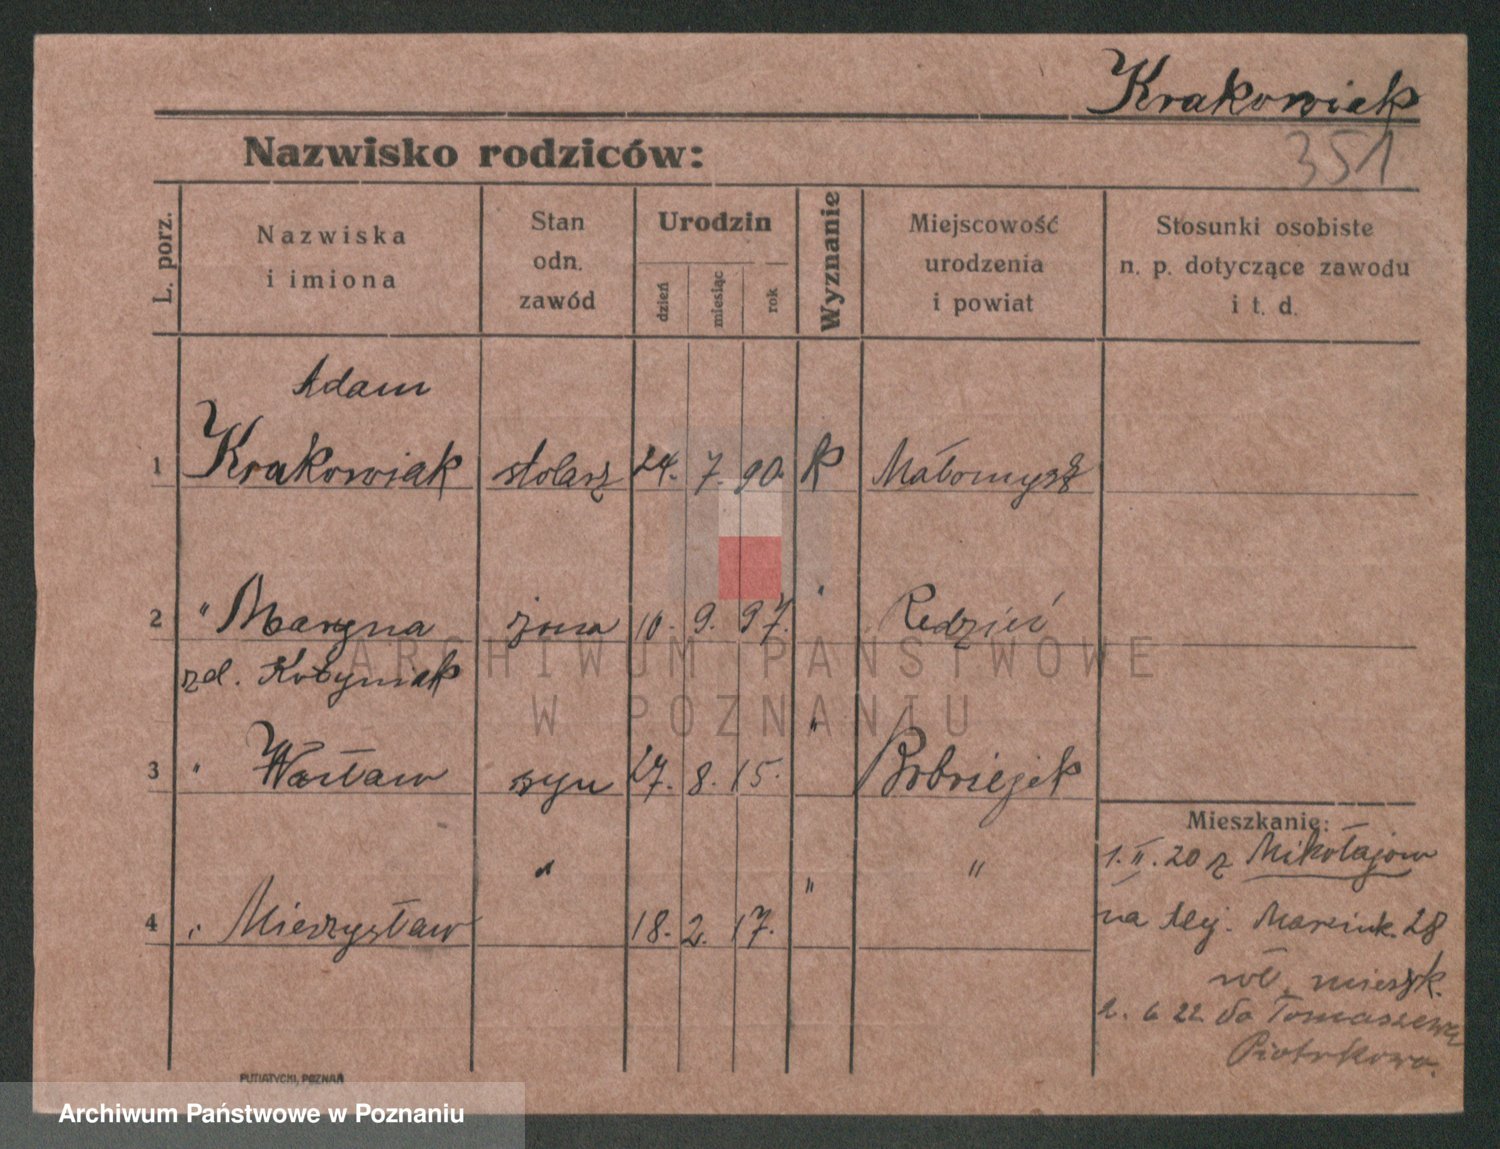 Krakowiak
351
Nazwisko rodziców:
L. porz.
Nazwiska
i imiona
Stan
odn.
zawód
Urodzin
dzień
miesiąc
rok
Wyznanie
Miejscowość
urodzenia
i powiat
Stosunki osobiste
n. p. dotyczące zawodu
i t. d.
Adam
1 Krakowiak stolarz 24. 7. 90. k Małomyśl
2 " Maryna żona 10. 9. 97. " Redzieć
zd.
3 " Wacław syn 27. 8. 15. "
Mieszkanie:
1. II. 20 z Mikołajow
4 " Mieczysław " 18. 2. 17. " "
na Alej. Marcink. 28
wł. mieszk.
2. 6 22 do Tomaszewa
Piotrkowa.
PUTIATYCKI, POZNAŃ
ARCHIWUM PAŃSTWOWE
W POZNANIU
Archiwum Państwowe w Poznaniu